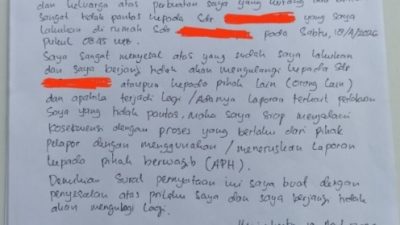 dan keluarga atas perbuatan saya yang kurang dan
sangat tidak pantas kepada Sdr yang saya
lakukan di rumah Sdr pada Sabtu,
Pukul WIB.
Saya sangat menyesal atas yang sudah saya lakukan
dan saya berjanji tidak akan mengulangi kepada Sdr
ataupun kepada Pihak lain (orang lain)
dan apabila terjadi lagi / Adanya laporan terkait perlakuan
Saya yang tidak pantas. Maka saya siap menjalani
konsekuensi dengan proses yang berlaku dari pihak
Pelapor dengan menggunakan / meneruskan laporan
kepada pihak berwajib (APH).
Demikian Surat pernyataan ini saya buat dengan
penyesalan atas prilaku saya dan saya berjanji tidak
akan mengulagi lagi.